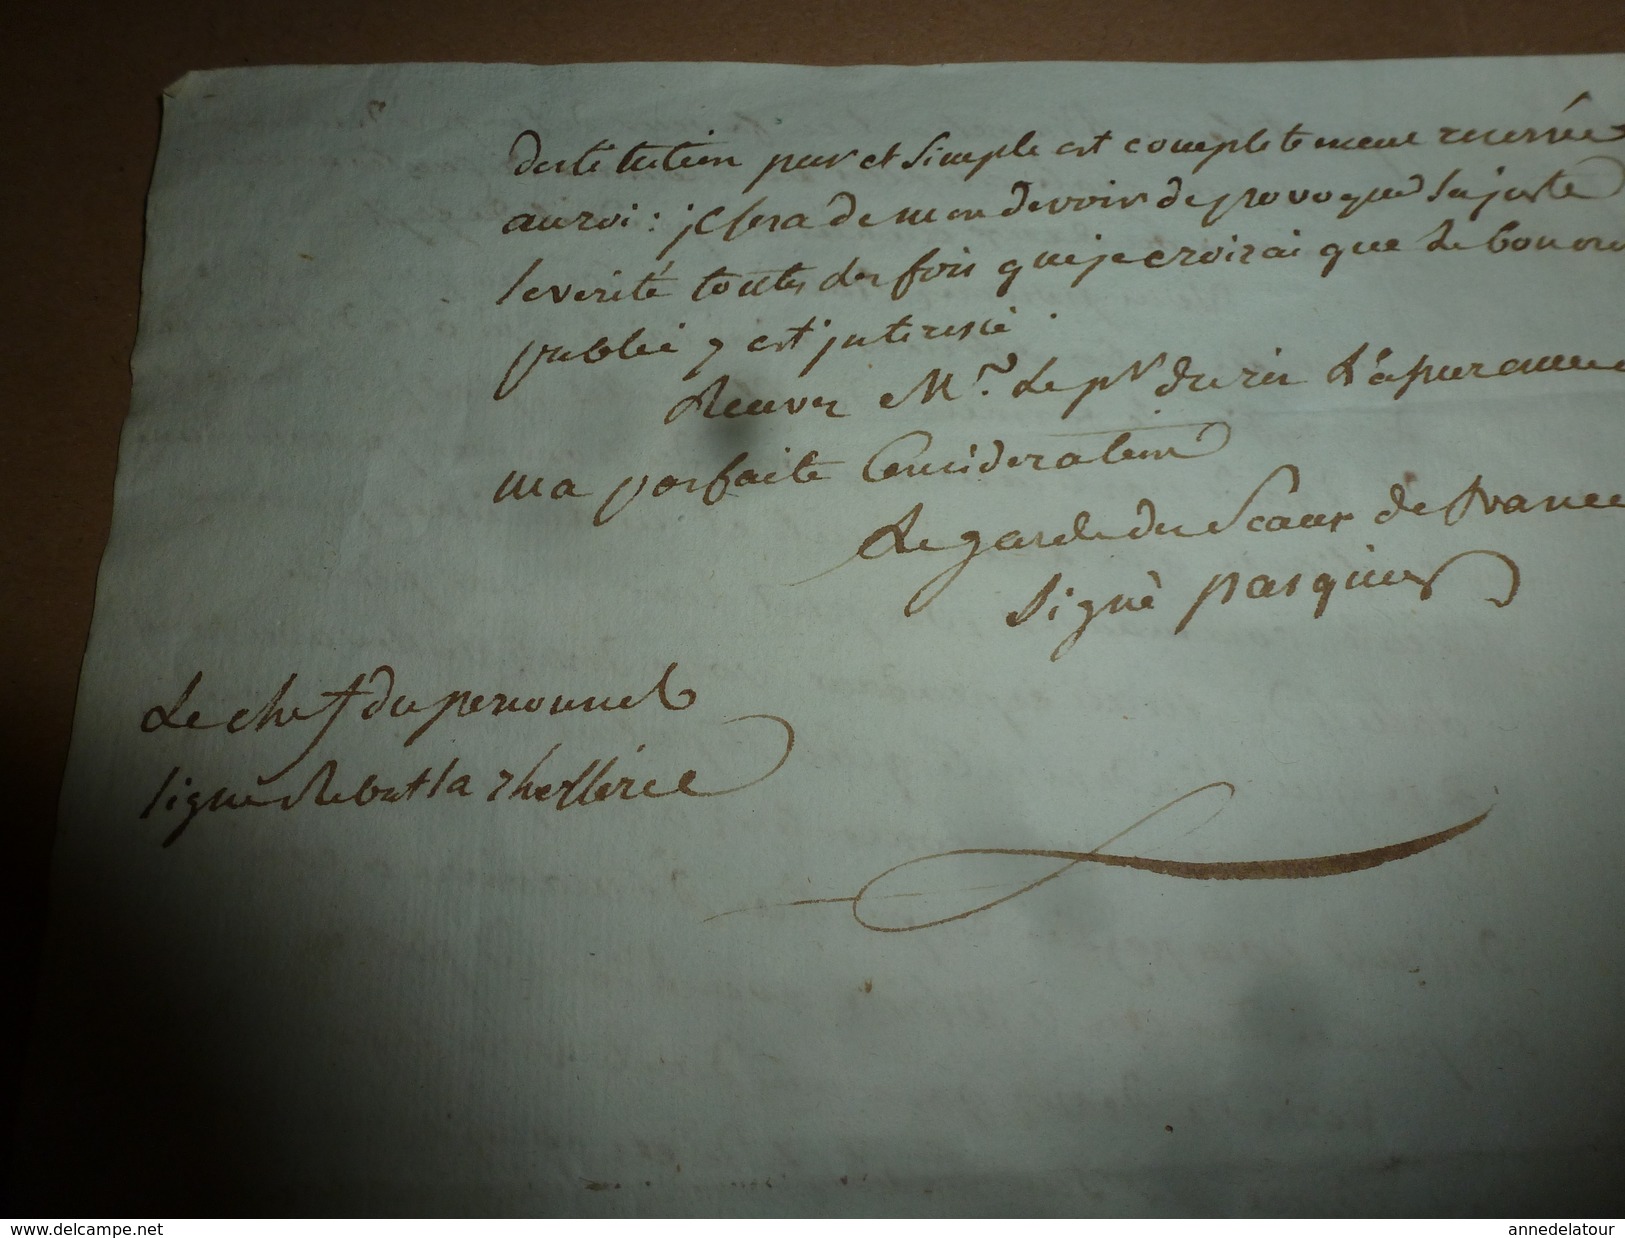 destitution pur et simple est completement reservée
au roi : je sera de mon devoir de provoquer sa juste
severité toutes des fois que je croirai que le bon ord
public y est interessé.
Recevez Mr. Le pr du roi L'assurance
ma parfaite Consideration
Le garde des Sceaux de france
Signé pasquier
Le chef du personnel
signé Rebut la rhellerie
www.delcampe.net
annedelatour